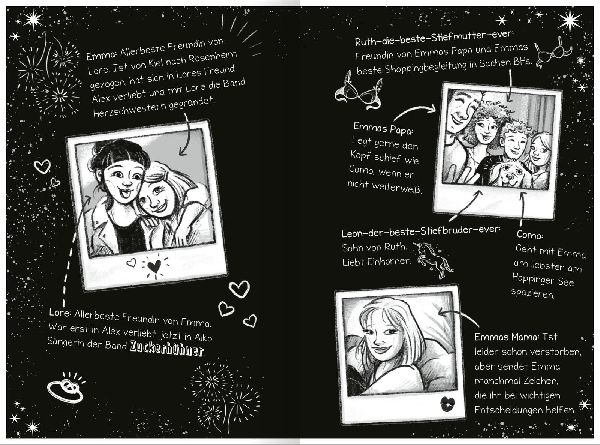 Emma: Allerbeste Freundin von
Lore. Ist von Kiel nach Rosenheim
gezogen, hat sich in Lores Freund
Alex verliebt und mit Lore die Band
Herzschwestern gegründet.
Lore: Allerbeste Freundin von Emma.
War erst in Alex verliebt, jetzt in Aiko.
Sängerin der Band Zuckerhühner
Ruth-die-beste-Stiefmutter-ever:
Freundin von Emmas Papa und Emmas
beste Shoppingbegleitung in Sachen BHs.
Emmas Papa:
Legt gerne den
Kopf schief wie
Como, wenn er
nicht weiterweiß.
Leon-der-beste-Stiefbruder-ever:
Sohn von Ruth.
Liebt Einhörner.
Como:
Geht mit Emma
am liebsten am
See
spazieren.
Emmas Mama: Ist
leider schon verstorben,
aber sendet Emma
manchmal Zeichen,
die ihr bei wichtigen
Entscheidungen helfen.